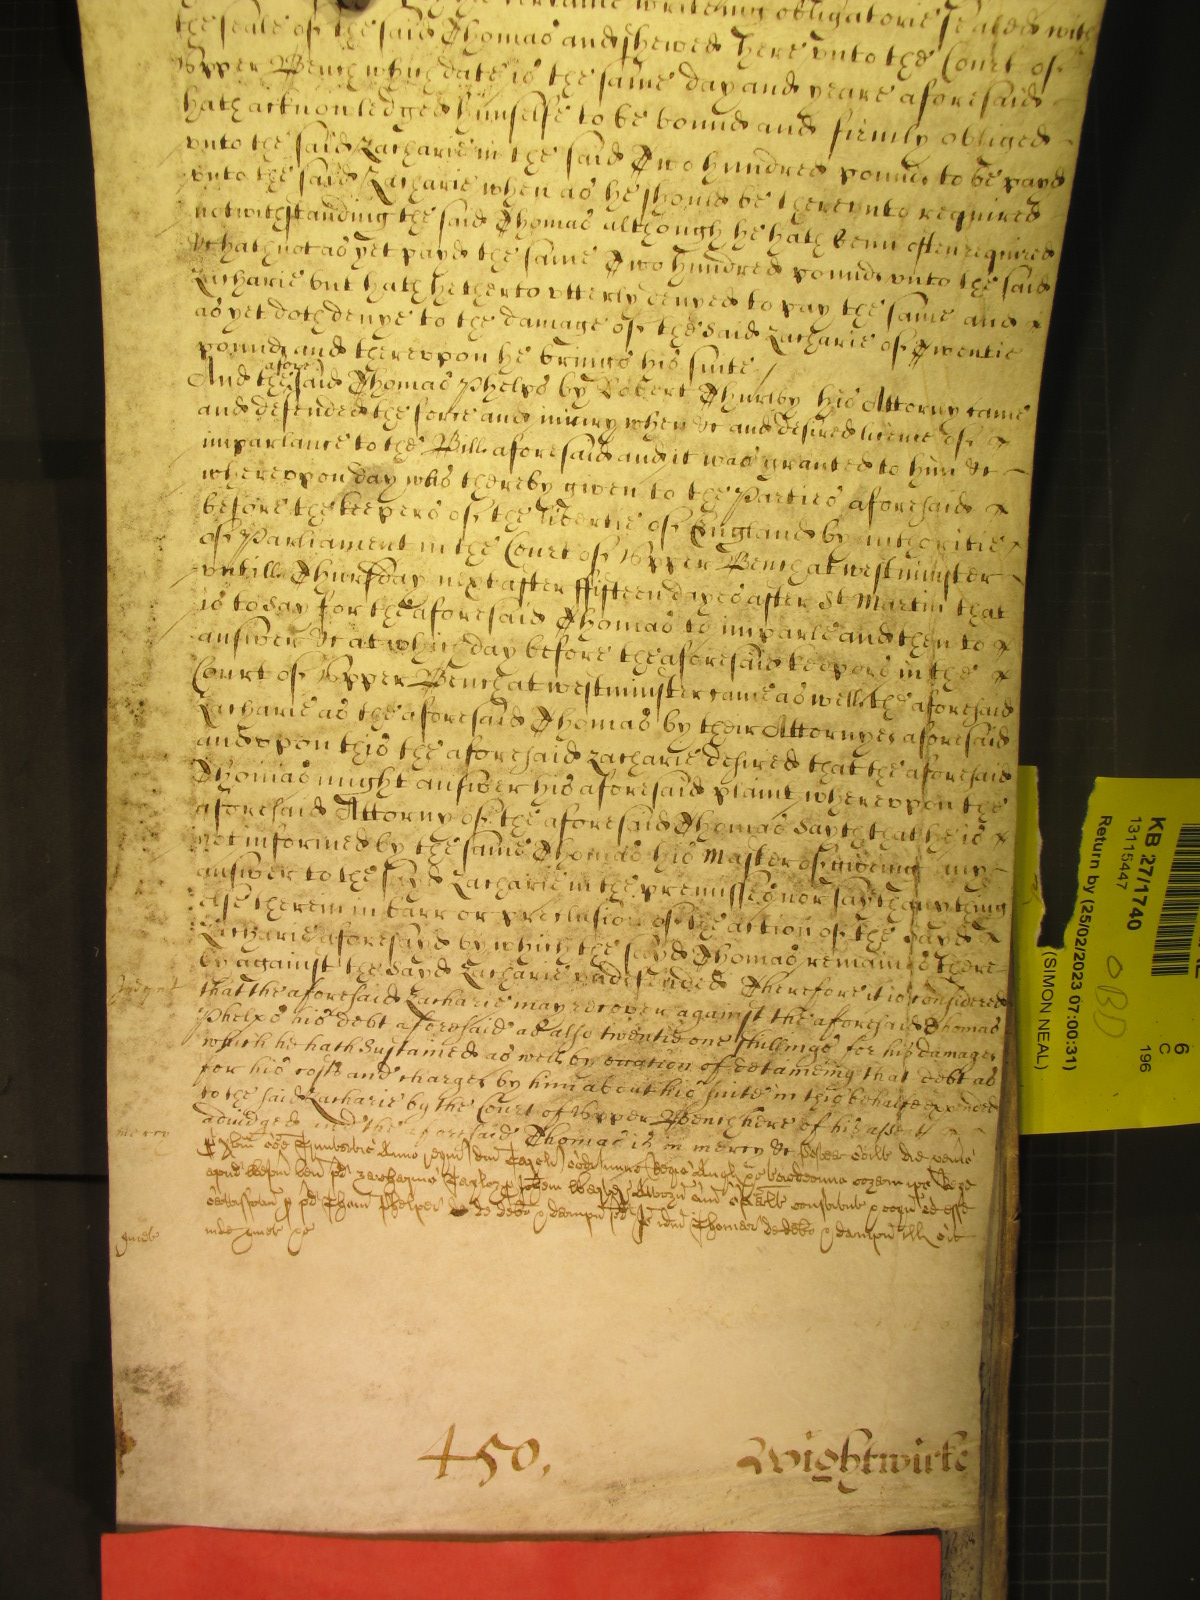 certaine writeing obligatorie sealed with
the seale of the said Thomas and shewed here unto the Court of
Upper Bench which date is the same day and yeare aforesaid
hath acknowledged himselfe to be bound and firmly obliged
vnto the said Zacharie in the said Two hundred pounds to be payd
vnto the said Zacharie when as he should be therevnto required
notwithstanding the said Thomas although he hath benn often required
&c hath not as yet payd the same Two hundred pounds vnto the said
Zacharie but hath hetherto vtterly denyed to pay the same and
as yet doth denye to the damage of the said Zacharie of Twentie
pounds and therevpon he brings his suite
And the afore said Thomas Phelps by Robert Thurlby his Attorny came
and defended the force and iniury when &c and desired licence of
imparlance to the Bill aforesaid and it was granted to him &c
wherevpon day was thereby given to the Parties aforesaid
before the keepers of the libertie of England by authoritie
of Parliament in the Court of Upper Bench at Westminster
vntill Thursday next after ffifteen dayes after St Martin that
is to say for the aforesaid Thomas to imparle and then to
answer &c at which day before the aforesaid keepers in the
Court of Upper Bench at Westminster came as well the aforesaid
Zacharie as the aforesaid Thomas by their Attornyes aforesaid
and vpon this the aforesaid Zacharie desired that the aforesaid
Thomas might answer his aforesaid plaint wherevpon the
aforesaid Attorny of the aforesaid Thomas sayth that he is
not informed by the same Thomas his Master of giveing any
answer to the sayd Zacharie in the premisses nor sayth any thing
else therein in barr or preclusion of the action of the sayd
Zacharie aforesayd by which the sayd Thomas remaines there
by against the sayd Zacharie vndefended Therefore it is considered
that the aforesaid Zacharie may recover against the aforesaid Thomas
Phelps his debt aforesaid as also twentie one shillings for his damages
which he hath sustained as well by occation of detaineing that debt as
for his costs and charges by him about his suite in this behalfe expended
to the said Zacharie by the Court of Upper Bench here of his assent
adiudged and the aforesaid Thomas is in mercy &c
mercy
450.
Wightwicke
KB 27/1740
13115447
Return by (25/02/2023 07:00:31)
(SIMON NEAL)
OBD
6
C
196